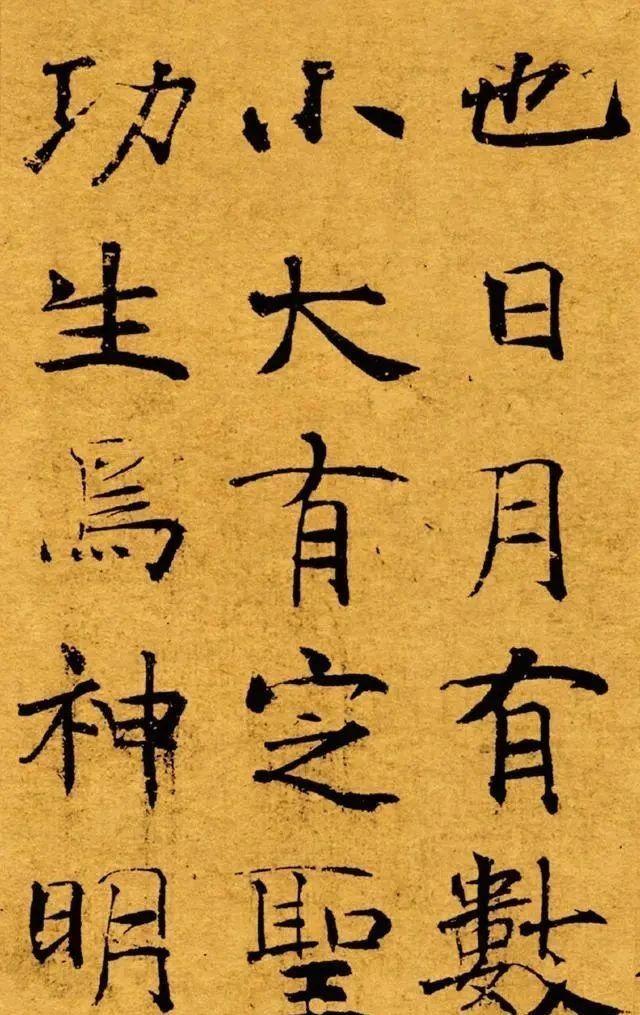 也日月有數
小大有定聖
功生爲神明